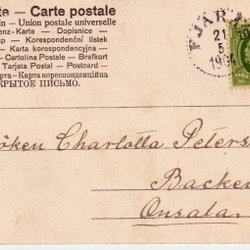 te – Carte postale
n – Union postale universelle
enz-Karte – Dopisnice
p – Korespondenční listek
– Karta korespondencyjna –
– Cartolina Postale – Brefkort
– Tarjeta Postal – Postcard –
арта – Карта корреспонденційная
КРЫТОЕ ПИСЬМО.
FJÄRÅ
21
5
190
öken Charlotta Peters
Backen
Onsala.